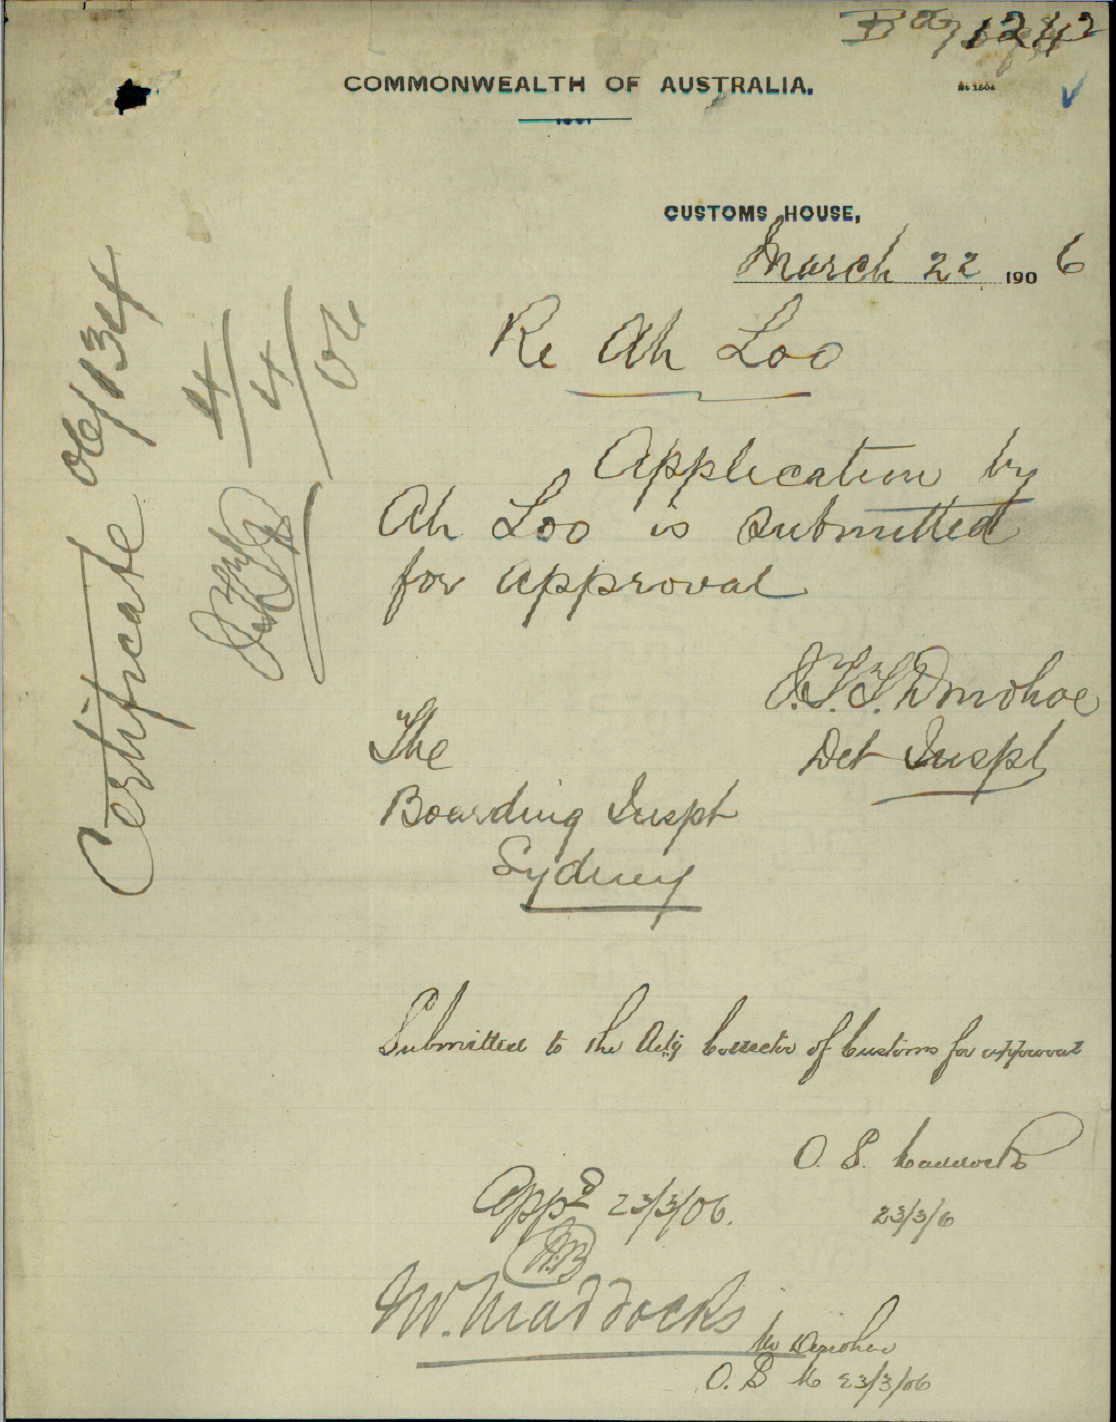 COMMONWEALTH OF AUSTRALIA.
CUSTOMS HOUSE,
March 22 1906
Re Ah Loo
Application by
Ah Loo is submitted
for approval
J.T.T. Donohoe
Det Inspt
The
Boarding Inspt
Sydney
Certificate 06/134
4/4/06
Submitted to the Actg Collector of Customs for approval
O. S. Maddocks
23/3/6
Appd 23/3/06.
Mr. Maddocks
Mr Donohoe
O. S M 23/3/06